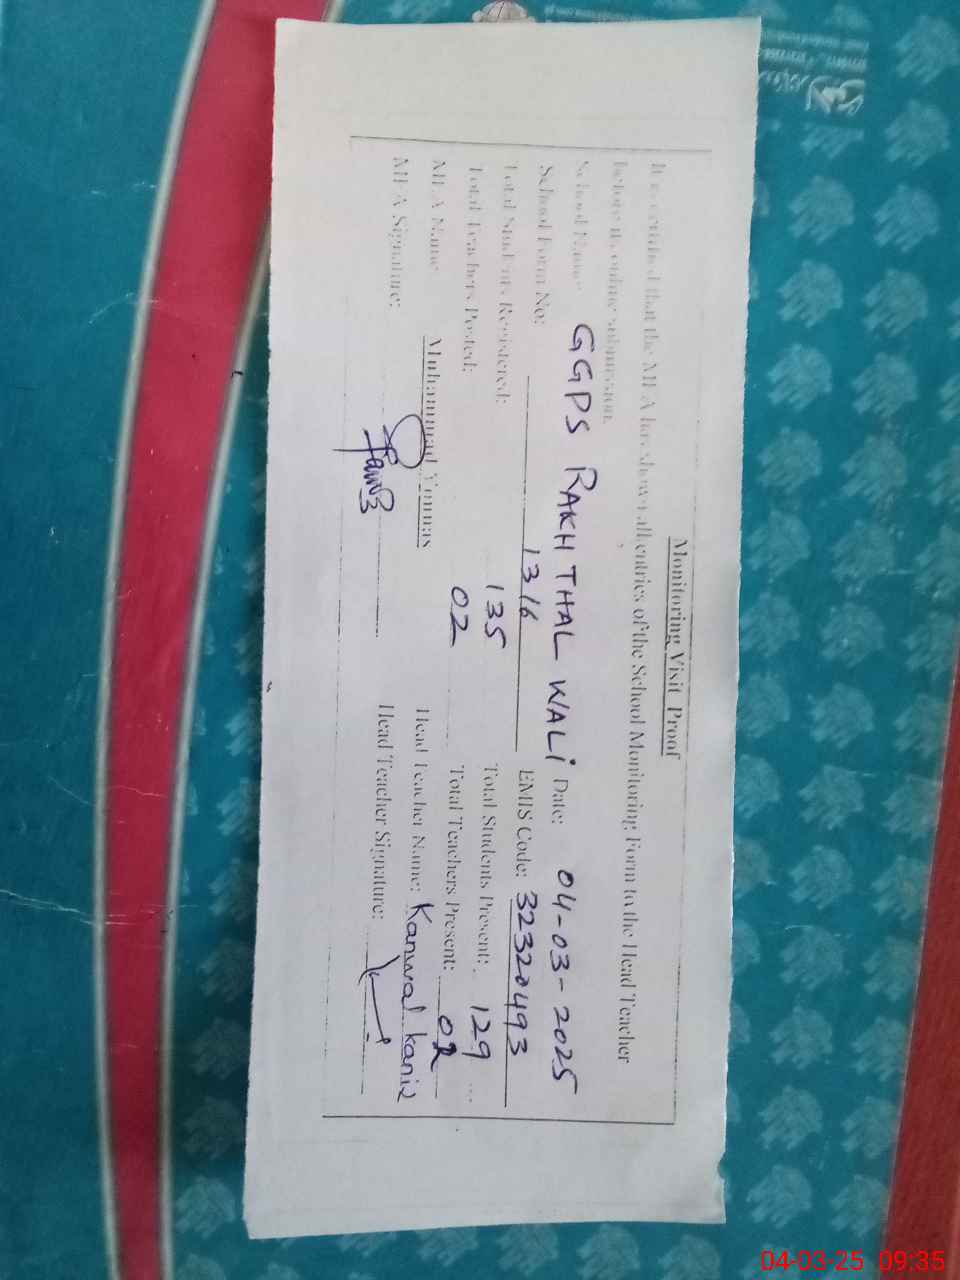 Monitoring Visit Proof
It is certified that the MEA has shown all entries of the School Monitoring Form to the Head Teacher
before its online submission.
School Name: GGPS RAKH THAL WALI Date: 04-03-2025
School Form No: 1316 EMIS Code: 32320493
Total Students Registered: 135 Total Students Present: 129
Total Teachers Posted: 02 Total Teachers Present: 02
MEA Name Muhammad Younas Head Teacher Name: Kanwal kaniz
MEA Signature: Head Teacher Signature:
04-03-25 09:35